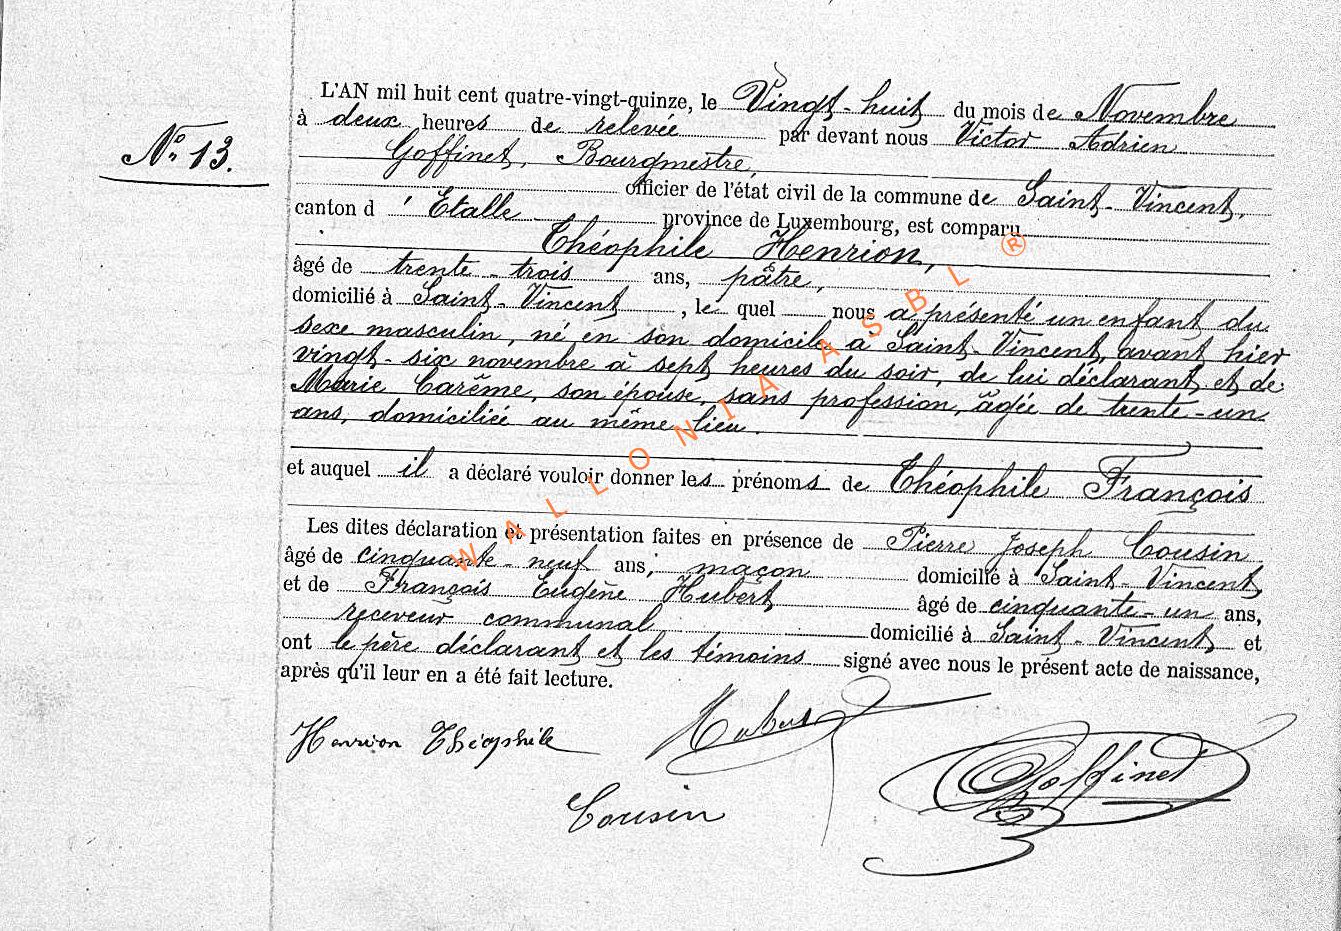 L'AN mil huit cent quatre-vingt-quinze, le Vingt-huit du mois de Novembre
à deux heures de relevée par devant nous Victor Adrien
N° 13.
Goffinet, Bourgmestre,
officier de l'état civil de la commune de Saint-Vincent,
canton d'Etalle province de Luxembourg, est comparu
Théophile Henrion,
âgé de trente-trois ans, pâtre,
domicilié à Saint-Vincent, le quel nous a présenté un enfant du
sexe masculin, né en son domicile à Saint-Vincent, avant hier
vingt-six novembre à sept heures du soir, de lui déclarant et de
Marie Carême, son épouse, sans profession, âgée de trente-un
ans, domiciliée au même lieu.
et auquel il a déclaré vouloir donner les prénoms de Théophile François
Les dites déclaration et présentation faites en présence de Pierre Joseph Cousin
âgé de cinquante-neuf ans, maçon domicilié à Saint-Vincent,
et de François Eugène Hubert âgé de cinquante-un ans,
receveur communal domicilié à Saint-Vincent et
ont le père déclarant et les témoins signé avec nous le présent acte de naissance,
après qu'il leur en a été fait lecture.
Henrion Théophile Hubert
Goffinet
Cousin
WALLONIA ASBL ®